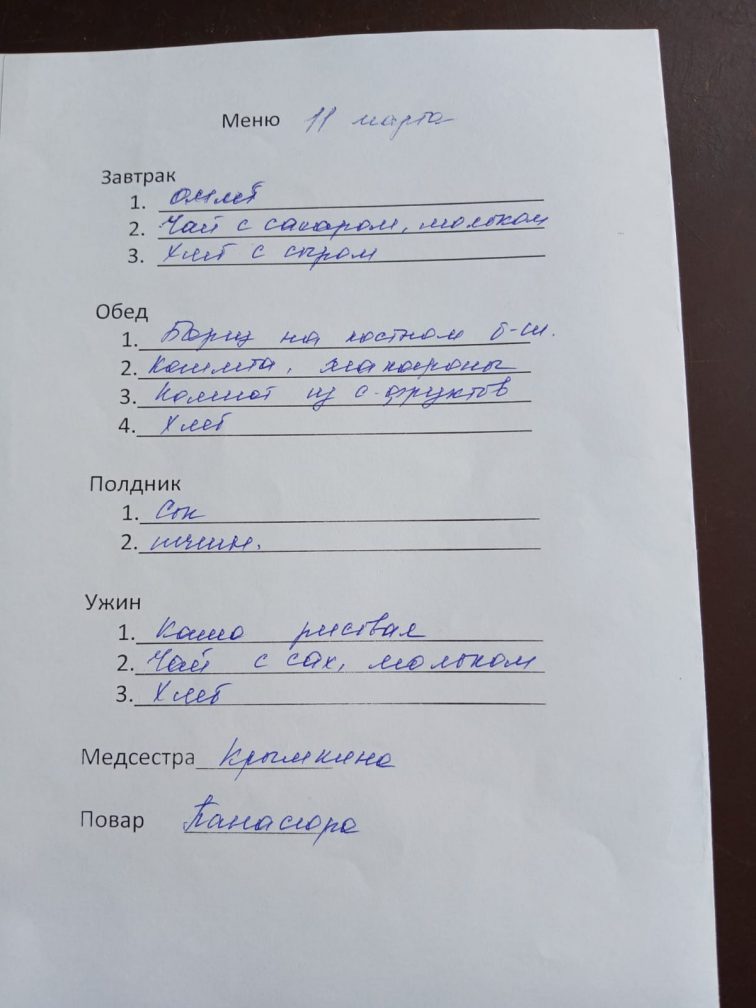 Меню 11 марта
Завтрак
1. Омлет
2. Чай с сахаром, молоком
3. Хлеб с сыром
Обед
1. Борщ на костном б-ш.
2. Котлета, макароны
3. Компот из с-фруктов
4. Хлеб
Полдник
1. Сок
2.
Ужин
1. Каша рисовая
2. Чай с сах, молоком
3. Хлеб
Медсестра Крымкина
Повар